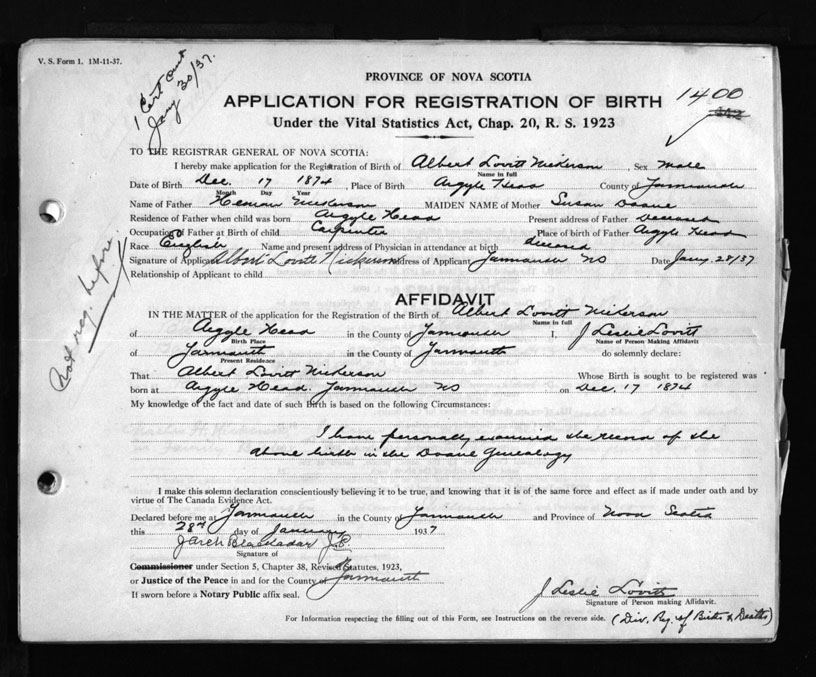 V. S. Form 1. 1M-11-37.
1 Cert
Jany 30/37.
PROVINCE OF NOVA SCOTIA
APPLICATION FOR REGISTRATION OF BIRTH 1400
Under the Vital Statistics Act, Chap. 20, R. S. 1923
TO THE REGISTRAR GENERAL OF NOVA SCOTIA:
I hereby make application for the Registration of Birth of Albert Lovitt Nickerson, Sex male
Name in full
Date of Birth Dec. 17 1874, Place of Birth Argyle Head County of Yarmouth
Month Day Year
Name of Father Heman Nickerson MAIDEN NAME of Mother Susan Doane
Residence of Father when child was born Argyle Head Present address of Father Deceased
Occupation of Father at Birth of child Carpenter Place of birth of Father Argyle Head
Race English Name and present address of Physician in attendance at birth deceased
Signature of Applicant Albert Lovitt Nickerson Address of Applicant Yarmouth NS Date Jany 28/37
Relationship of Applicant to child
Not reg. before.
AFFIDAVIT
IN THE MATTER of the application for the Registration of the Birth of Albert Lovitt Nickerson
Name in full
of Argyle Head in the County of Yarmouth I, J Leslie Lovitt
Birth Place Name of Person Making Affidavit
of Yarmouth in the County of Yarmouth do solemnly declare:
Present Residence
That Albert Lovitt Nickerson Whose Birth is sought to be registered was
born at Argyle Head. Yarmouth NS on Dec. 17 1874
My knowledge of the fact and date of such Birth is based on the following Circumstances:
I have personally examined the record of the
above birth in the Doane Genealogy
I make this solemn declaration conscientiously believing it to be true, and knowing that it is of the same force and effect as if made under oath and by
virtue of The Canada Evidence Act.
Declared before me at Yarmouth in the County of Yarmouth and Province of Nova Scotia
this 28th day of January 1937
Blackadar J.P.
Signature of
Commissioner under Section 5, Chapter 38, Revised Statutes, 1923,
or Justice of the Peace in and for the County of Yarmouth
If sworn before a Notary Public affix seal.
J Leslie Lovitt
Signature of Person making Affidavit.
For Information respecting the filling out of this Form, see Instructions on the reverse side. (Div. Reg. of Births & Deaths)